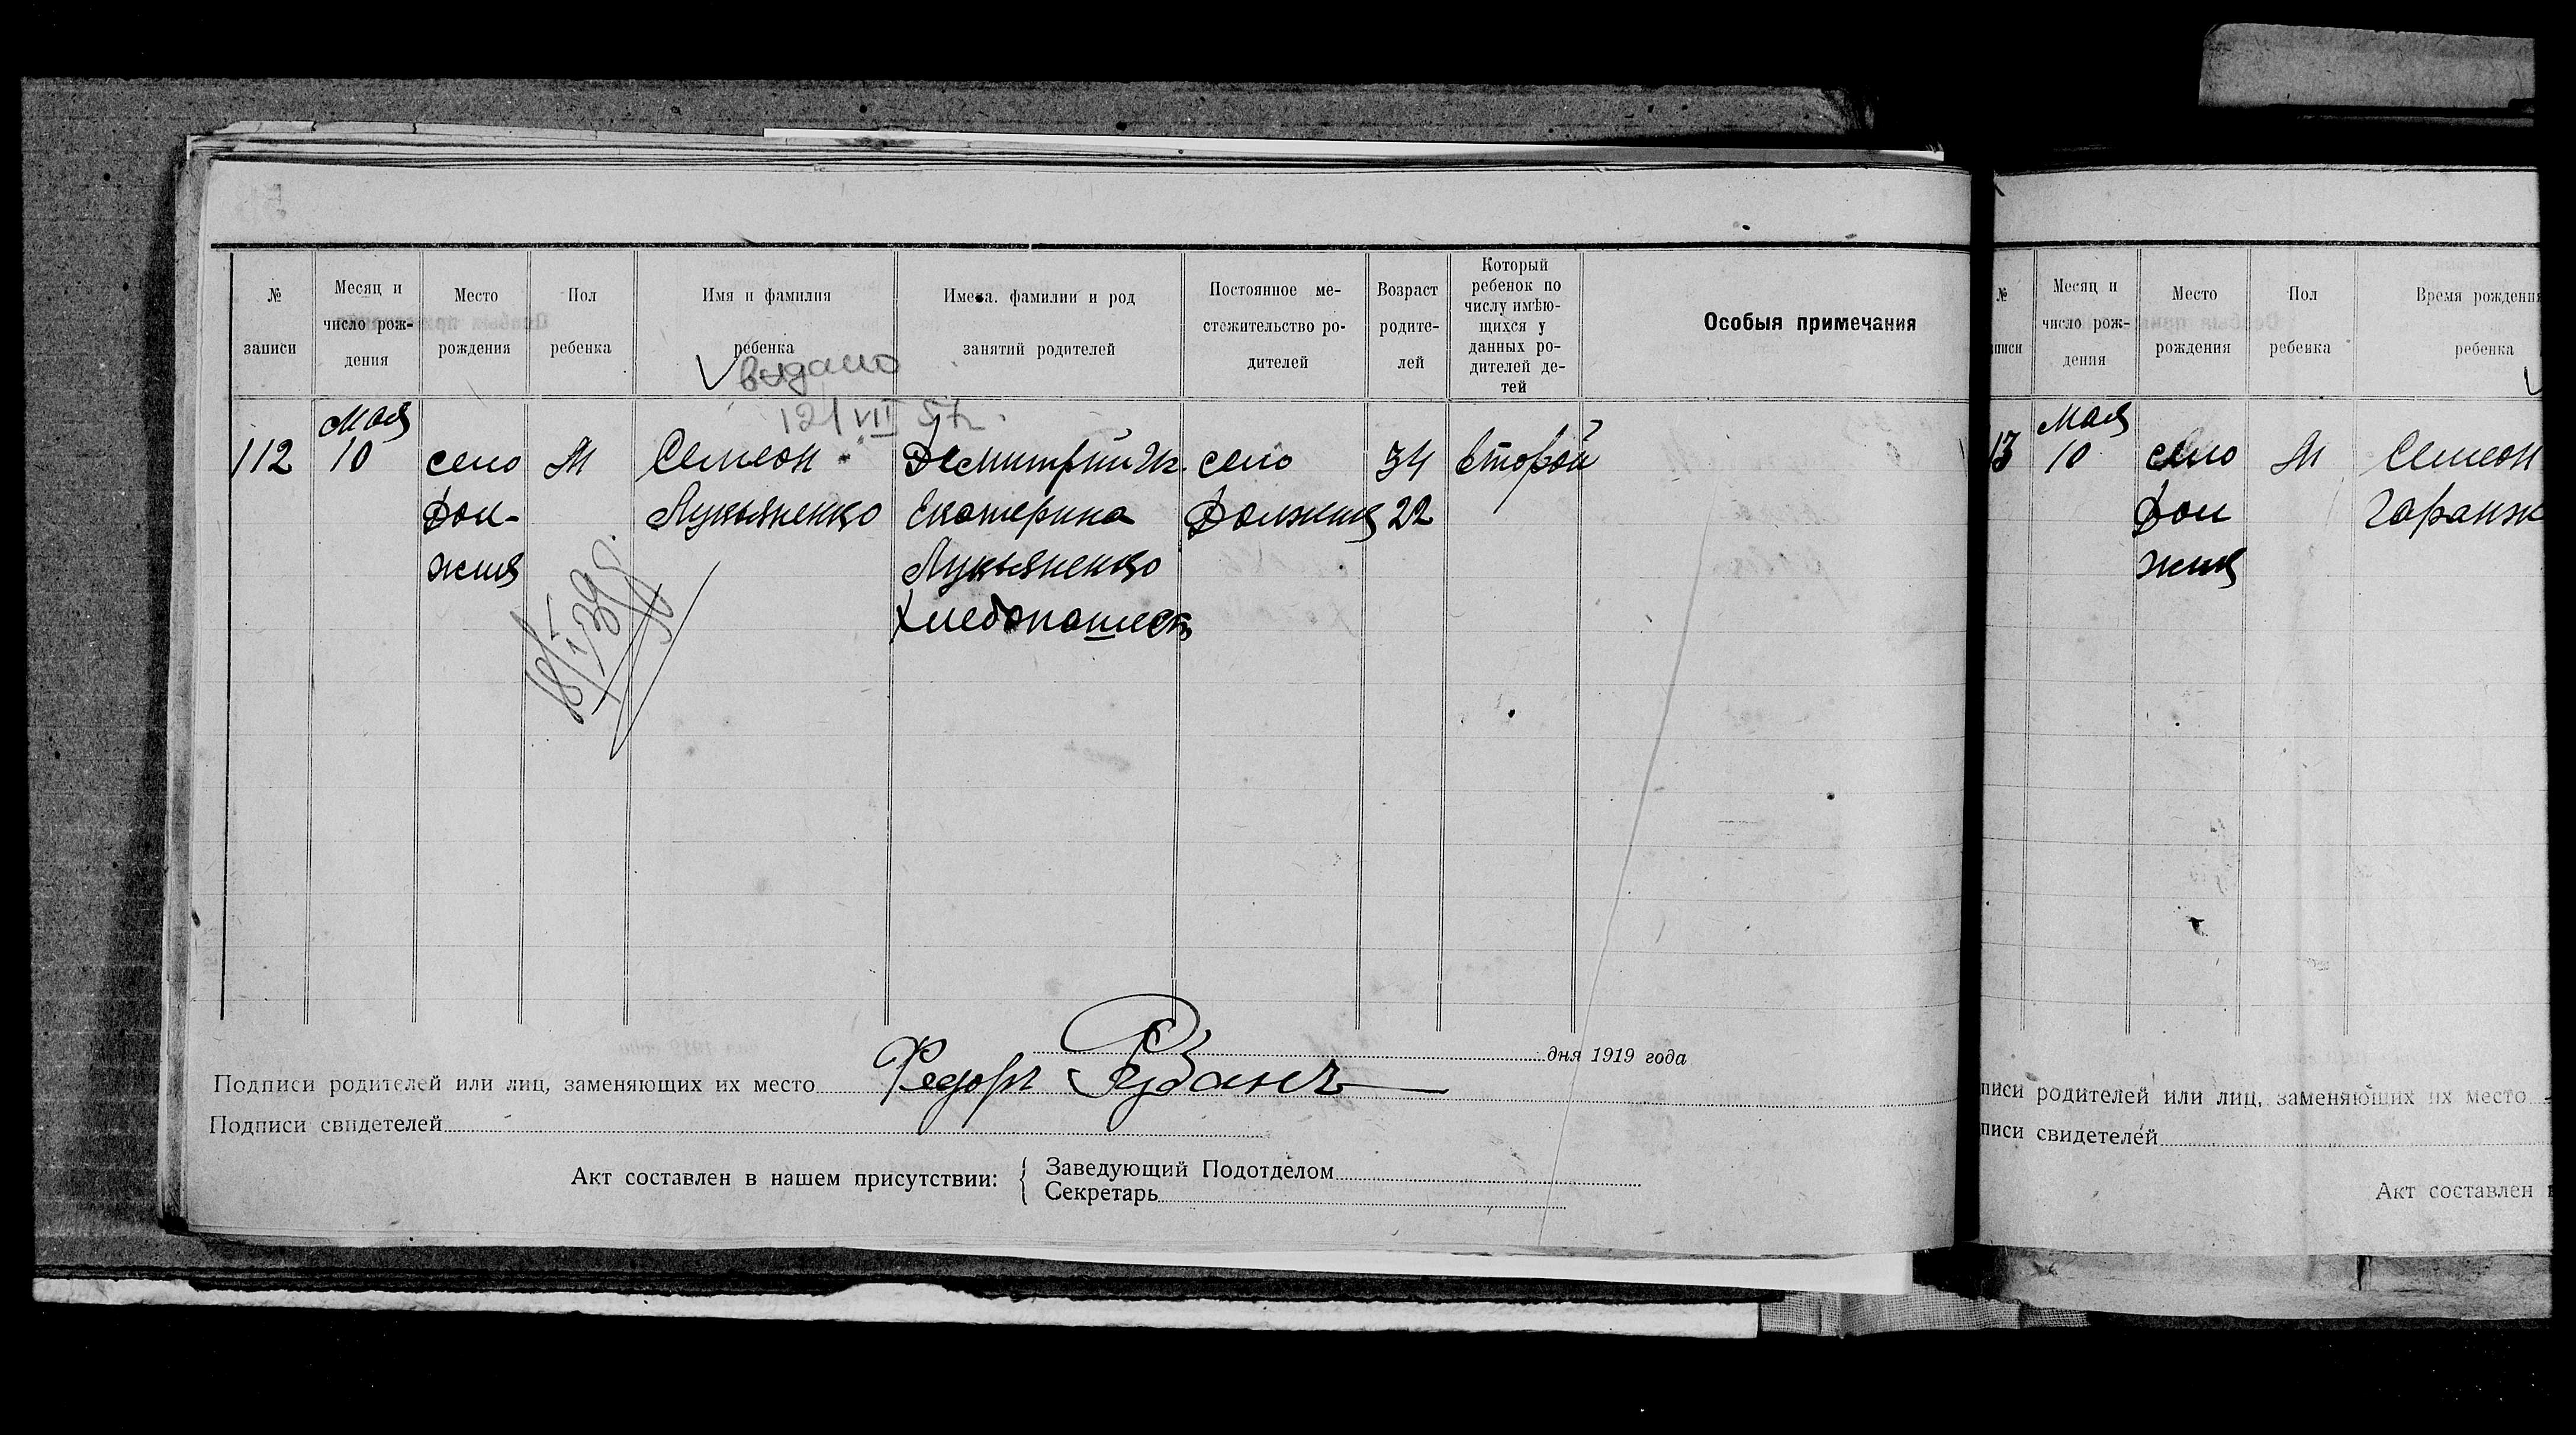 № записи
Месяц и число рождения
Место рождения
Пол ребенка
Имя и фамилия ребенка
Имена. фамилии и род занятий родителей
Постоянное местожительство родителей
Возраст родителей
Который ребенок по числу имѣющихся у данных родителей детей
Особыя примечания
выдано
12/VII 57г.
мая
112 10 село М Семеон Демитрий и село 34 второй
Дол- Лукьяненко Екатерина Должик 22
жик Лукьяненко
Хлебопашест
18/I 39
дня 1919 года
Подписи родителей или лиц, заменяющих их место Федоръ Рубанъ
Подписи свидетелей
Акт составлен в нашем присутствии: { Заведующий Подотделом
Секретарь
№ писи
Месяц и число рождения
Место рождения
Пол ребенка
Время рождения ребенка
мая
13 10 село М Семеон
Дол Гаранж
жик
писи родителей или лиц, заменяющих их место
писи свидетелей
Акт составлен в